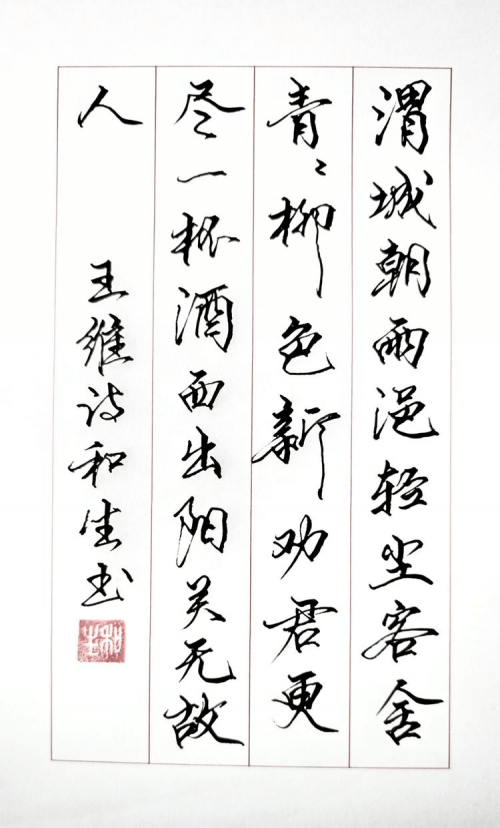 渭城朝雨浥轻尘客舍
青〻柳色新劝君更
尽一杯酒西出阳关无故
人
王维诗和生书
和生